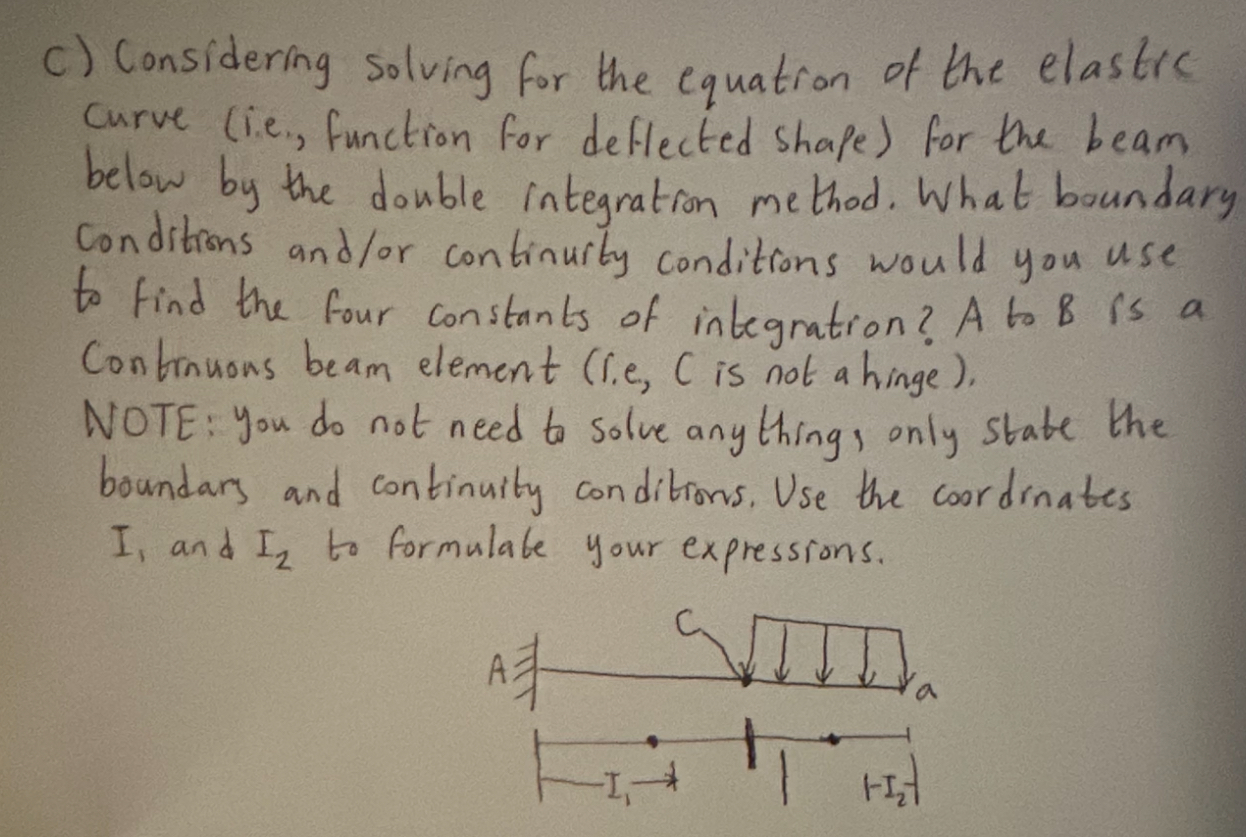 c) Considering solving for the equation of the elastic
curve (i.e., function for deflected shape) for the beam
below by the double integration method. What boundary
conditions and/or continuity conditions would you use
to find the four constants of integration? A to B is a
Continuous beam element (i.e, C is not a hinge).
NOTE: you do not need to solve anything, only state the
boundary and continuity conditions. Use the coordinates
I₁ and I₂ to formulate your expressions.
C
A
a
I₁
I₂